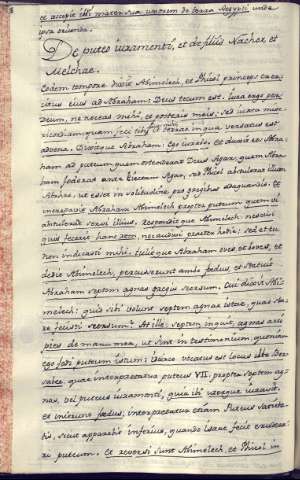 et accepit illi mater sua uxorem de terra Aegypti unde
ipsa oriunda.
De puteo iuramenti, et de filiis Nachor et
Melchae.
Eodem tempore dixit Abimelech, et Phicol princeps exer-
citus eius ad Abraham: Deus tecum est. Iura ergo per
Deum, ne noceas mihi, et posteris meis; sed iuxta mise-
ricordiam, quam feci tibi, et terrae in qua versatus es
advena. Dixitque Abraham: Ego iurabo, et duxit eu Abra-
ham ad puteum quem ostenderat Deus Agar, quem Abra-
ham foderat ante eiectam Agar, sed Phicol abstulerat illum
Abrahae, ut esset in solitudine pro gregibus adaquandis. Et
increpavit Abraham Abimelech propter puteum quem vi
abstulerunt servi illius. Responditque Abimelech: nescivi
quis fecerit hanc rem, nec audivi praeter hodie; sed et tu
non indicasti mihi. Tulit que Abraham oves, et boves, et
dedit Abimelech, percusserunt ambo foedus, et statuit
Abraham septem agnas gregis seorsum. Cui dixit Abi-
melech: quid sibi volunt septem agnae istae, quas sta-
re fecisti seorsum? At ille: septem, inquit, agnas acci-
pies de manu mea, ut sint in testimonium, quoniam
ego fodi puteum istum: Idcirco vocatus est locus ille Ber-
sabee, quae interpretatur puteus VII. propter septem ag-
nas, vel puteus iuramenti, quia ibi uterque iuravit,
et inierunt foedus, interpretatur etiam Puteus Satieta-
tis, sicut apparebit inferius, quando Isaac fecit
puteum. Et reversi sunt Abimelech, et Phicol in